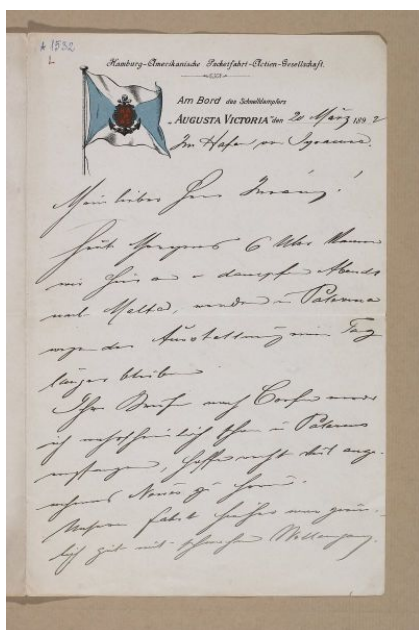 A 1532
L
Hamburg-Amerikanische Packetfahrt-Actien-Gesellschaft.
Am Bord des Schnelldampfers
„AUGUSTA VICTORIA" den 20 März 1892
Im Hafen von Syracus.
Mein lieber Herr
Heut Morgens 6 Uhr kamen
wir hier an u dampfen Abends
nach Malta, werden in Palermo
wegen der Ausstellung einen Tag
länger bleiben
Ihre Briefe nach Corfu werde
ich wahrscheinlich schon in Palermo
empfangen, hoffe recht viel ange-
nehmes Neues zu hören.
Unsere Fahrt hieher war
lich gut mit schwachem Wellengang.